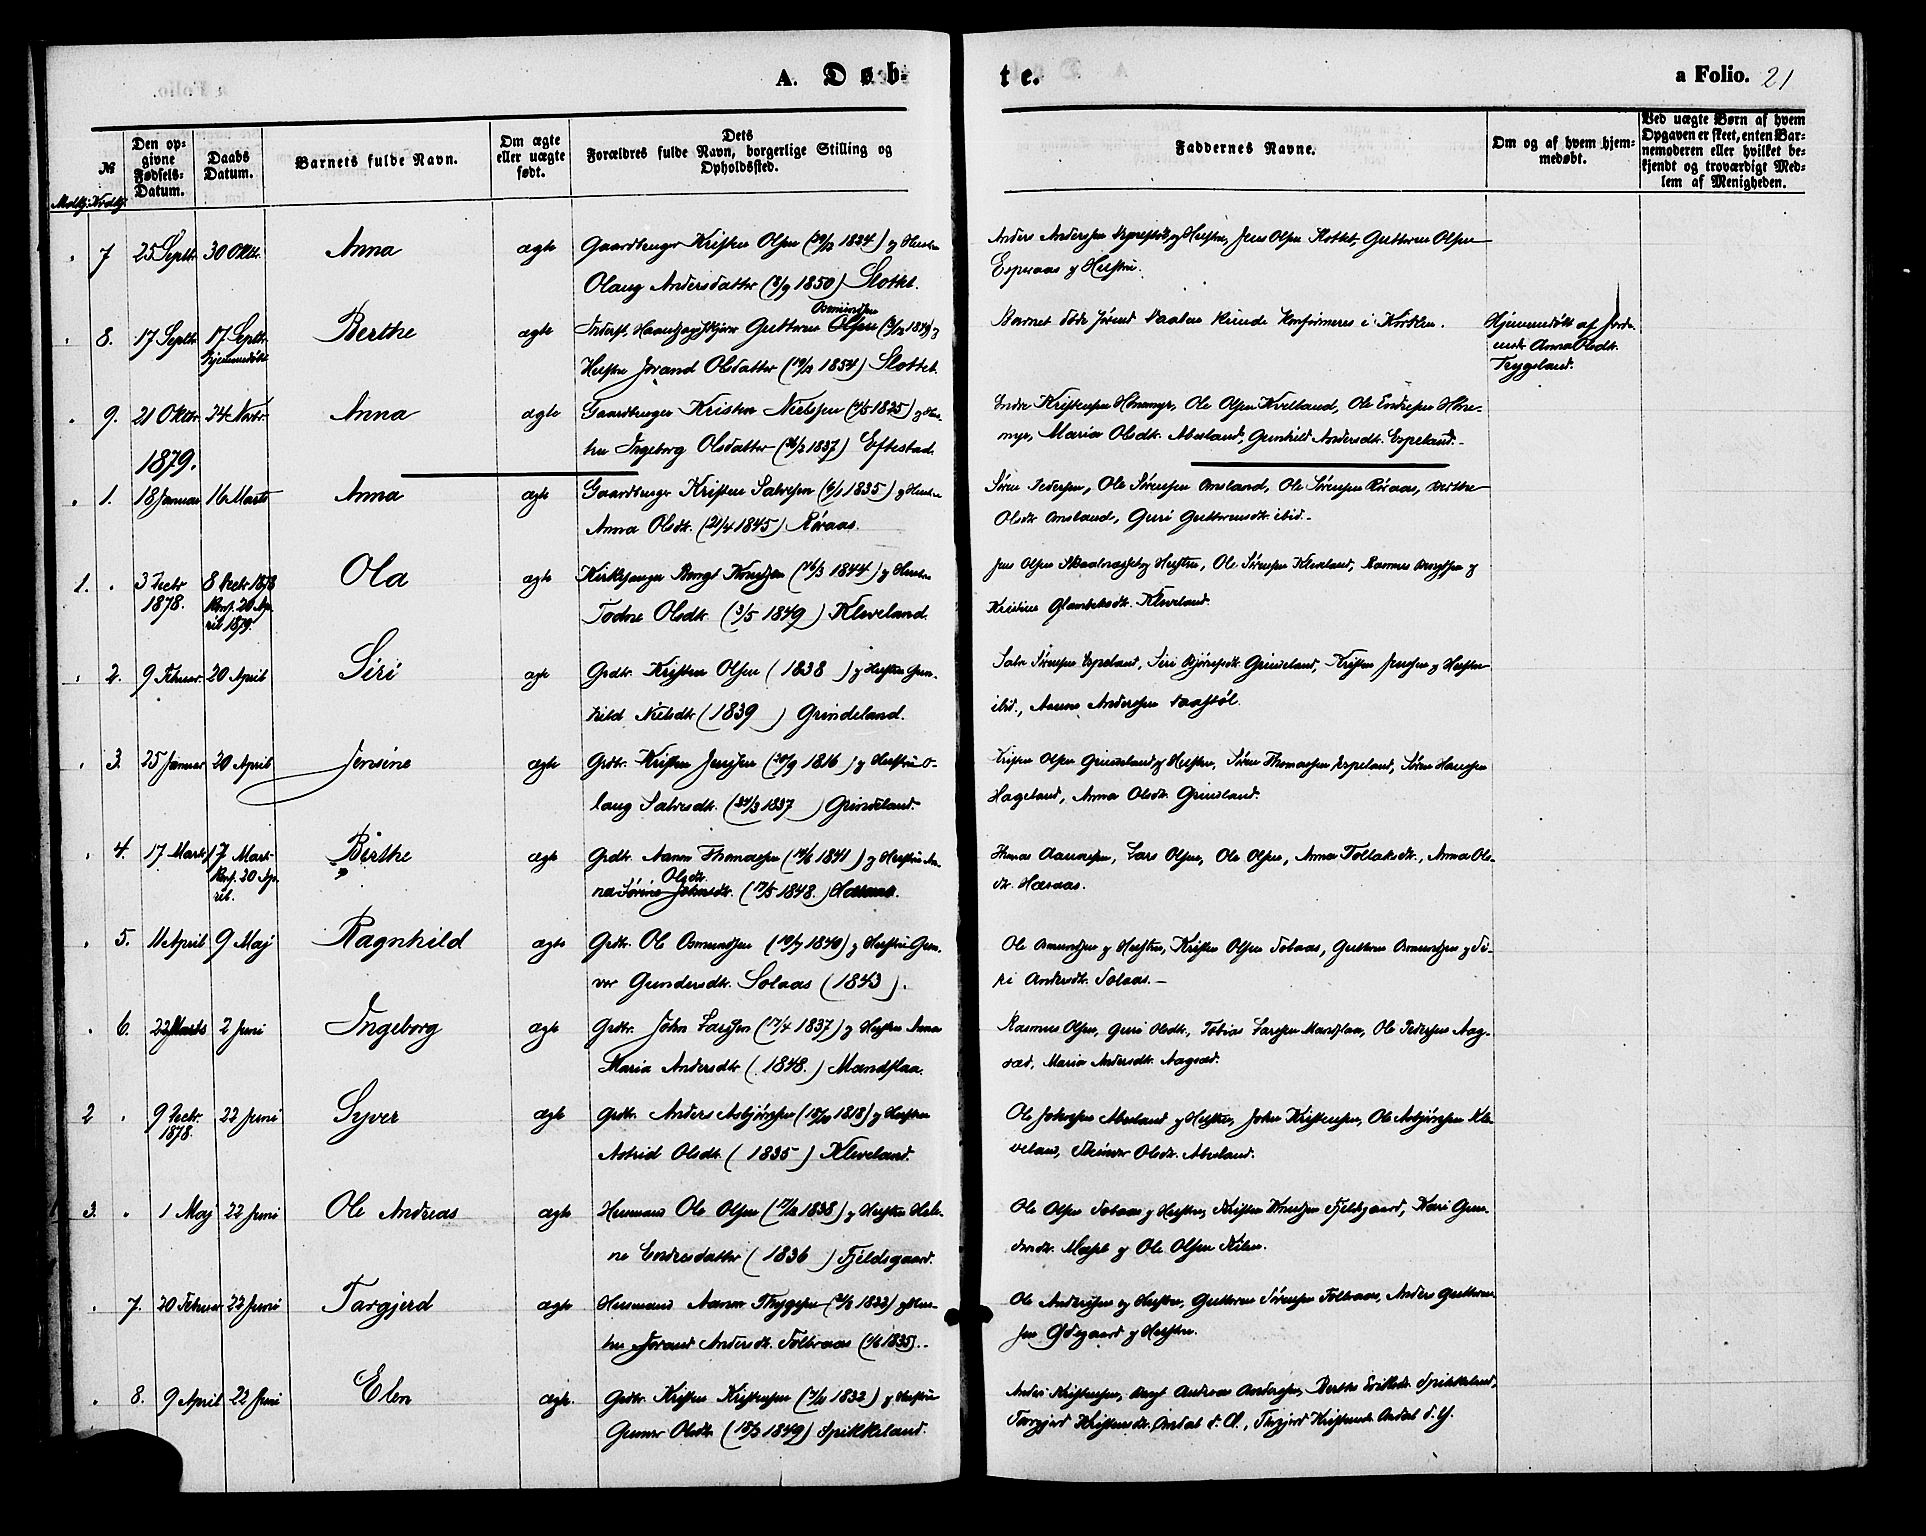 A. Døb-
te.
a Folio. 21
№
Mndkj. Kvndkj.
Den op-
givne
Fødsels-
Datum.
Daabs
Datum.
Barnets fulde Navn.
Om ægte
eller uægte
født.
Dets
Forældres fulde Navn, borgerlige Stilling og
Opholdssted.
Faddernes Navne.
Om og af hvem hjem-
medøbt.
Ved uægte Børn af hvem
Opgaven er skeet, enten Bar-
nemoderen eller hvilket be-
kjendt og troværdigt Med-
lem af Menigheden.
7 25 Septr. 30 Oktr. Anna ægte Gaardbruger Kristen Olsen (1834) og Hustru
Olaug Andersdatter (8/9 1850) Slottet.
Anders Andersen og Hustru, Jens Olsen Slottet, Guttorm Olsen
Espeaas og Hustru.
8. 17 Septr. 17 Septr. Berthe ægte Guttorm Olsen Osmundsen
Hjemmedøbt
Hustru Jorand Olsdatter (1854) Slottet.
Barnet døde førend Daaben kunde konfirmeres i Kirken.
Hjemmedøbt af Jorde-
mdr. Anna Olsdt.
Trygsland.
9. 21 Oktbr. 24 Novbr. Anna ægte Gaardbruger Kristen Nielsen (1825) og Hus-
tru Ingeborg Olsdatter (1837) Eftestad.
Endre Kristensen Honemyr, Ole Olsen Kvelland, Ole Endresen Hone-
myr, Maria Olsdt. Abeland, Gunhild Andersdt. Espeland.-
1879.
1. 18 Januar 16 Marts Anna ægte Gaardbruger Kristen Salvesen (6/1 1835) og Hustru
Anna Olsdt. (21/4 1845) Røraas.
Søren Pedersen, Ole Sørensen Omland, Ole Sørensen Røraas, Berthe
Olsdt. Omsland, Guri Guttormsdt. ibid.-
1. 3 Decbr. 8 Decbr. 1878 Ola ægte Kirkesanger Bengt Knudsen (16/3 1844) og Hustru
1878. Konf. 20 Ap-
ril 1879.
Todne Olsdt. (3/5 1849) Kleveland.
Jens Olsen og Hustru, Ole Sørensen Kleveland, Rasmus Bengtsen og
Kristine Kleveland.
2. 9 Februar. 20 April Siri ægte Grdbr. Kristen Olsen (1838) og Hustru Gun-
hild Nielsdt. (1839) Grindeland.
Salve Sørensen Espeland, Siri Grindeland, Kristen Jensen og Hustru
ibid., Aanon Andersen
3. 25 Januar 20 April Jensine ægte Grdbr. Kristen Jensen (1816) og Hustru O-
laug Salvesdt. (1837) Grindeland.
Kristen Olsen Grindeland og Hustru, Søren Thomassen Espeland, Søren Hansen
Hageland, Anna Olsdt. Grindeland.
4. 17 Marts 17 Marts Berthe ægte Grdbr. Aanon Thomassen (1841) og Hustru An-
Konf. 20 Ap-
ril.
Olsdt.
na Sørine Johnsdt. (17/5 1848.)
Thomas Aanonsen, Lars Olsen, Ole Olsen, Anna Tollaksdt., Anna Ols-
dt.
5. 11 April 9 Maj Ragnhild ægte Grdbr. Ole Osmundsen (1840) og Hustru Gun-
vor Gundersdt. Solaas (1843).
Ole Osmundsen og Hustru, Kristen Olsen Solaas, Guttorm Osmundsen og Si-
ri Andersdt. Solaas.-
6. 22 Marts 2 Juni Ingeborg ægte Grdbr. John Larssen (17/4 1837) og Hustru Anne
Maria Andersdtr (1848.) Mandflaa.
Rasmus Olsen, Guri Olsdt., Tobias Larssen Mandflaa, Ole Pedersen Aag-
sæd, Maria Andersdt. Aagsæd.
2 9 Decbr. 22 Juni Syver ægte Grdbr. Anders Asbjørnsen (1818) og Hustru
1878.
Astrid Olsdt. (1835) Kleveland.
Ole Johnsen Abeland og Hustru, John Kristensen, Ole Asbjørnsen Kle-
veland, Olsdt. Abeland.
3. 1 Maj 22 Juni Ole Andreas ægte Husmand Ole Olsen (1838) og Hustru Hele-
ne Endresdatter (1836) Fjeldsgaard.
Ole Olsen Solaas og Hustru, Kristen Knudsen Fjeldsgaard, Kari Gun-
og Ole Olsen
7. 20 Februar 22 Juni Targjerd ægte Husmand Aanon Thygesen (1832) og Hus-
tru Jorand Andersdt. Toltvaas (1835).-
Ole Andersen og Hustru, Guttorm Sørensen Toltvaas, Anders Guttorm-
sen Ødegaard og Hustru.
8. 9 April 22 Juni Elen ægte. Grdbr. Kristen Kristensen (1832) og Hustru
Gunvor Olsdt. (1849) Sprikkeland.
Anders Kristensen, Bengt Andreas Andersen, Berthe Sprikkeland,
Targjerd Kristensdt. Omdal d. Æ., Targjerd Kristensdt. Omdal d. Y.